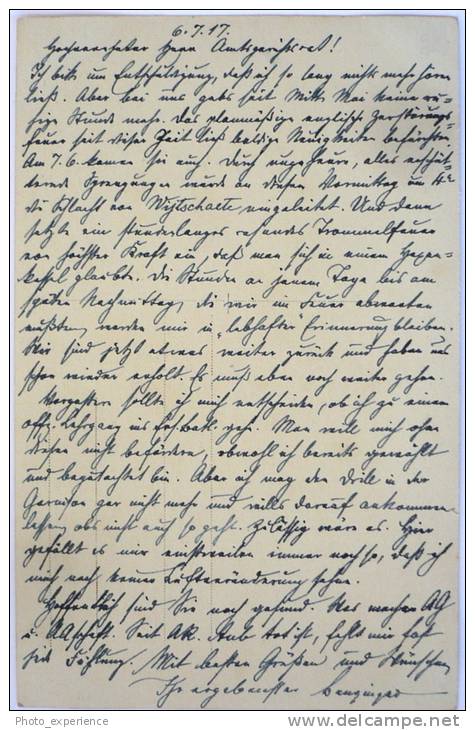 6.7.17.
Hochverehrter Herr Amtsgerichtsrat!
Ich bitte um Entschuldigung, daß ich so lang nichts mehr hören
ließ. Aber bei uns gabs seit Mitte Mai keine ru-
hige Stunde mehr. Das planmäßige englische Zerstörungs-
feuer seit dieser Zeit ließ baldige Neuigkeiten befürchten.
Am 7.6. kamen sie auch. Durch ungeheure, alles erschüt-
ternde Sprengungen wurde an diesem Vormittag um 4
die Schlacht von Wijtschaete eingeleitet. Und dann
setzte ein stundenlanges rasendes Trommelfeuer
von höchster Kraft ein, daß man sich in einem Hexen-
kessel glaubte. Die Stunden an jenem Tage bis am
späten Nachmittag, die wir im Feuer abwarten
mußten, werden mir in „lebhafter“ Erinnerung bleiben.
Wir sind jetzt etwas weiter zurück und haben uns
schon wieder erholt. Es muß eben noch weiter gehen.
Vorgestern sollte ich mich entscheiden, ob ich zu einem
Offz. Lehrgang ins Ers. Batl. geh. Man will mich ohne
diesen nicht befördern, obwohl ich bereits gewählt
und begutachtet bin. Aber ich mag den Drill in der
Garnison gar nicht mehr und wills darauf ankommen
lassen, obs nicht auch so geht. Zulässig wäre es. Hier
gefällt es mir einstweilen immer noch so, daß ich
mich nach keiner Luftveränderung sehne.
Hoffentlich sind Sie noch gesund. Was machen AG
u. AGschaft. Seit tot ist, fehlt mir fast
jede Fühlung. Mit besten Grüßen und Wünschen
Ihr ergebenster
Photo_experience
www.delcampe.net